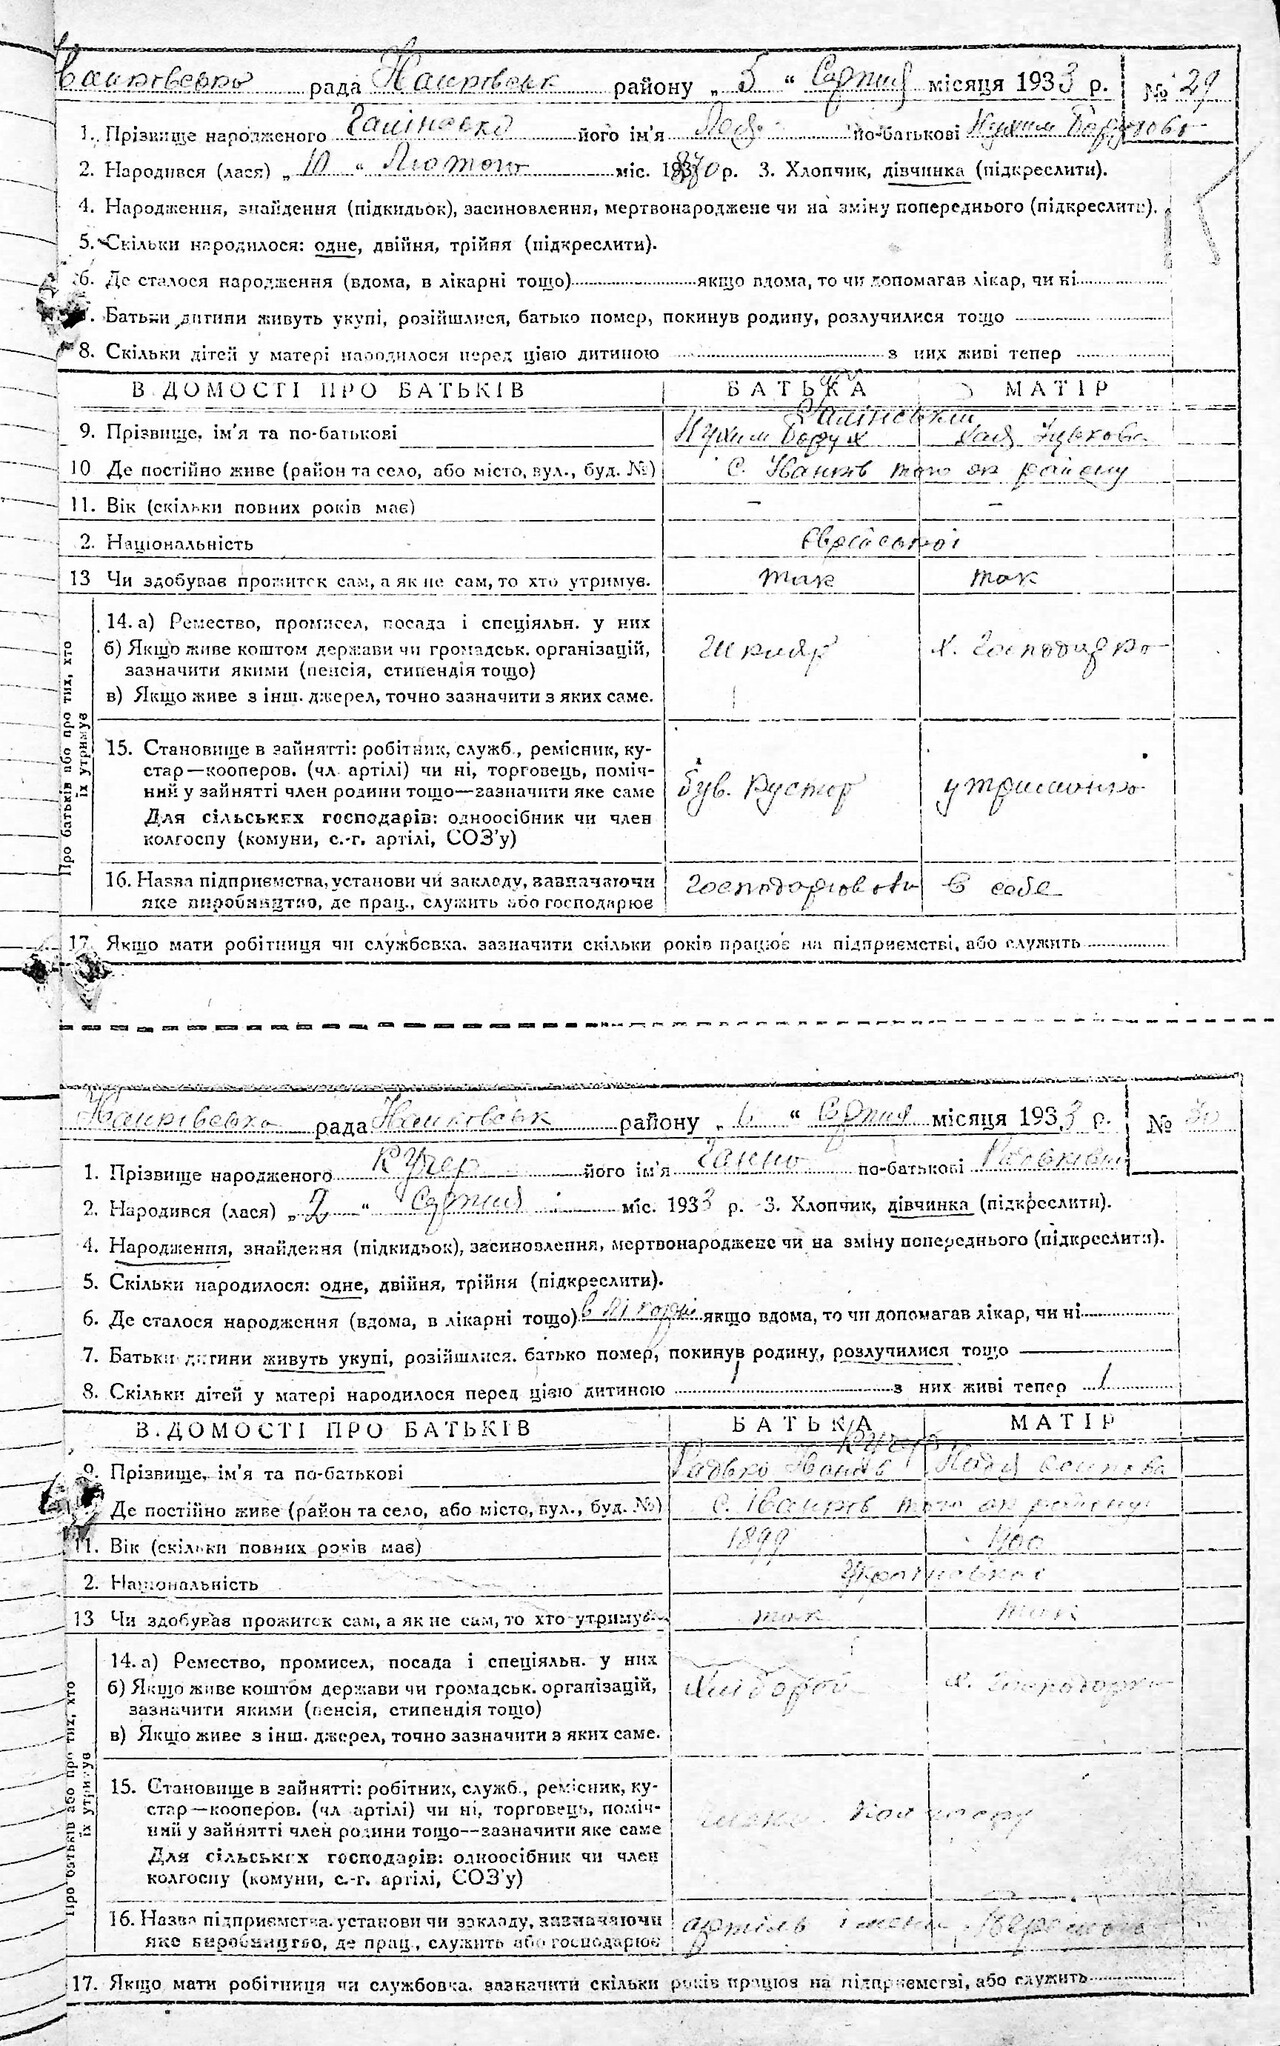 рада району „ 5 “ Серпня місяця 1933 р. № 29
1. Прізвище народженого його ім'я по-батькові
2. Народився (лася) „ 10 “ Лютого міс. 193 р. 3. Хлопчик, дівчинка (підкреслити).
4. Народження, знайдення (підкидьок), засиновлення, мертвонароджене чи на зміну попереднього (підкреслити).
5. Скільки народилося: одне, двійня, трійня (підкреслити).
6. Де сталося народження (вдома, в лікарні тощо) якщо вдома, то чи допомагав лікар, чи ні
7. Батьки дитини живуть укупі, розійшлися, батько помер, покинув родину, розлучилися тощо
8. Скільки дітей у матері народилося перед цією дитиною з них живі тепер
В ДОМОСТІ ПРО БАТЬКІВ БАТЬКА МАТІР
9. Прізвище, ім'я та по-батькові
10 Де постійно живе (район та село, або місто, вул., буд. №) с. Іванків того ж району
11. Вік (скільки повних років має) – –
2. Національність Єврейської
13 Чи здобував прожиток сам, а як не сам, то хто утримує. так так
Про батьків або про тих, хто
їх утримує
14. а) Ремество, промисел, посада і спеціяльн. у них
б) Якщо живе коштом держави чи громадськ. організацій,
зазначити якими (пенсія, стипендія тощо)
в) Якщо живе з інш. джерел, точно зазначити з яких саме.
15. Становище в зайнятті: робітник, служб., ремісник, ку-
стар—кооперов. (чл. артілі) чи ні, торговець, поміч-
ний у зайнятті член родини тощо—зазначити яке саме
Для сільських господарів: одноосібник чи член
колгоспу (комуни, с.-г. артілі, СОЗ'у)
16. Назва підприємства, установи чи закладу, зазначаючи
яке виробництво, де прац., служить або господарює
17. Якщо мати робітниця чи службовка, зазначити скільки років працює на підприємстві, або служить
рада району „ “ Серпня місяця 1933 р. № 30
1. Прізвище народженого Кучер його ім'я Ганна по-батькові
2. Народився (лася) „ 2 “ Серпня міс. 1933 р. 3. Хлопчик, дівчинка (підкреслити).
4. Народження, знайдення (підкидьок), засиновлення, мертвонароджене чи на зміну попереднього (підкреслити).
5. Скільки народилося: одне, двійня, трійня (підкреслити).
6. Де сталося народження (вдома, в лікарні тощо) в лікарні якщо вдома, то чи допомагав лікар, чи ні
7. Батьки дитини живуть укупі, розійшлися, батько помер, покинув родину, розлучилися тощо
8. Скільки дітей у матері народилося перед цією дитиною 1 з них живі тепер 1
В ДОМОСТІ ПРО БАТЬКІВ БАТЬКА МАТІР
9. Прізвище, ім'я та по-батькові
Де постійно живе (район та село, або місто, вул., буд. №) с. Іванків того ж району
11. Вік (скільки повних років має) 1899 1900
2. Національність
13 Чи здобував прожиток сам, а як не сам, то хто утримує так так
Про батьків або про тих, хто
їх утримує
14. а) Ремество, промисел, посада і спеціяльн. у них
б) Якщо живе коштом держави чи громадськ. організацій,
зазначити якими (пенсія, стипендія тощо)
в) Якщо живе з інш. джерел, точно зазначити з яких саме.
15. Становище в зайнятті: робітник, служб., ремісник, ку-
стар—кооперов. (чл артілі) чи ні, торговець, поміч-
ний у зайнятті член родини тощо—зазначити яке саме
Для сільських господарів: одноосібник чи член
колгоспу (комуни, с.-г. артілі, СОЗ'у)
16. Назва підприємства, установи чи закладу, зазначаючи
яке виробництво, де прац., служить або господарює
артіль імени
17. Якщо мати робітниця чи службовка, зазначити скільки років працює на підприємстві, або служить